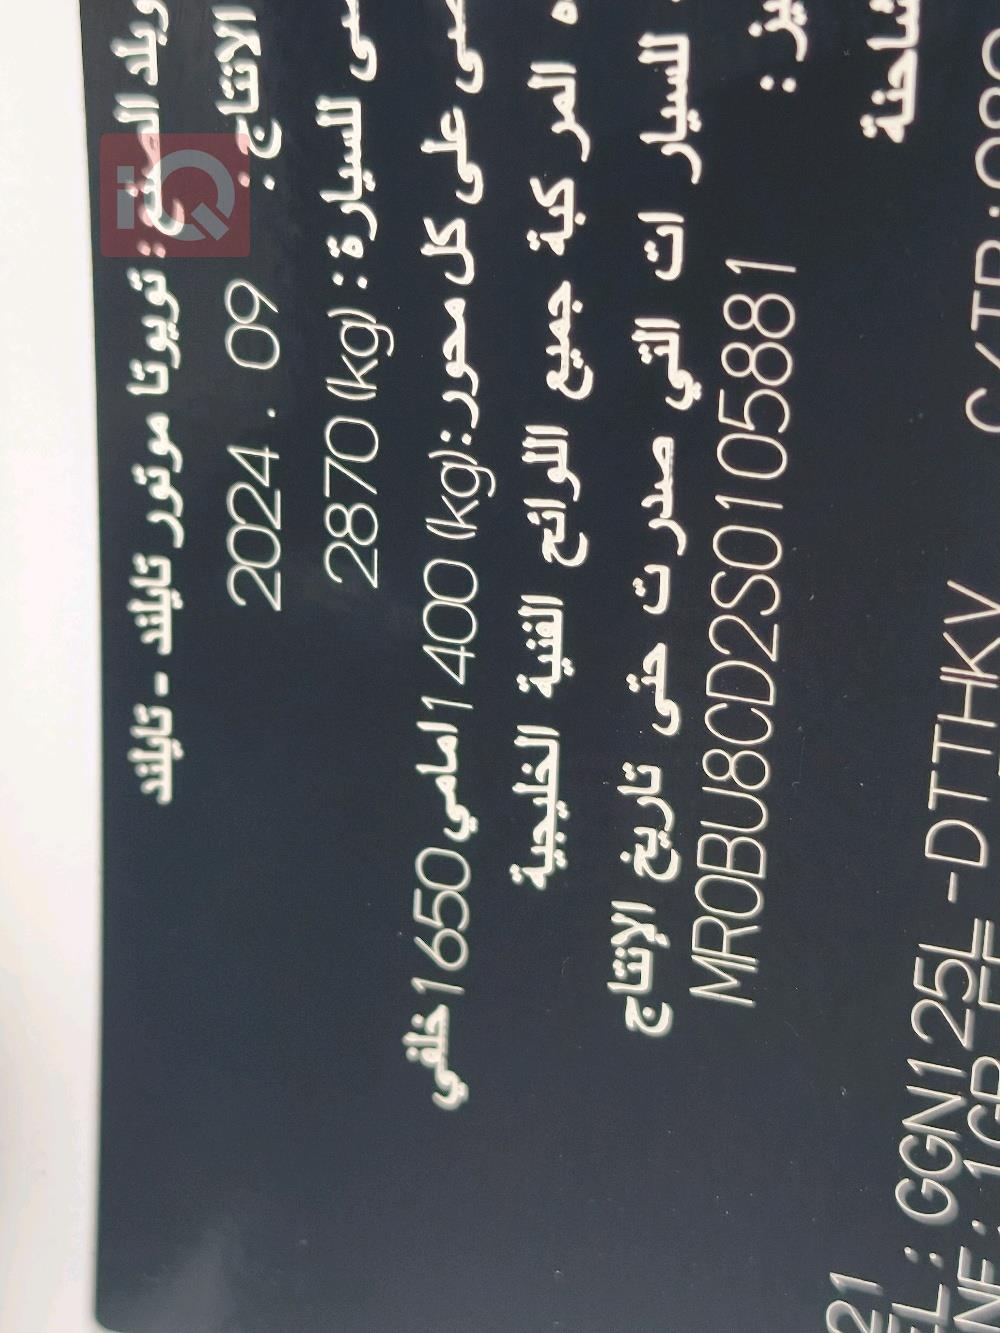 وبلد الصنع : تويوتا موتور تايلند - تايلند
الانتاج : 09 . 2024
للسيارة : 2870 (kg)
على كل محور:(kg) 1400 امامي 1650 خلفي
المركبة جميع اللوائح الفنية الخليجية
للسيارات التي صدرت حتى تاريخ الإنتاج
MR0BU8CD2S0105881
شاحنة
21
GGN125L -DTTHKV C/TR:
iQ